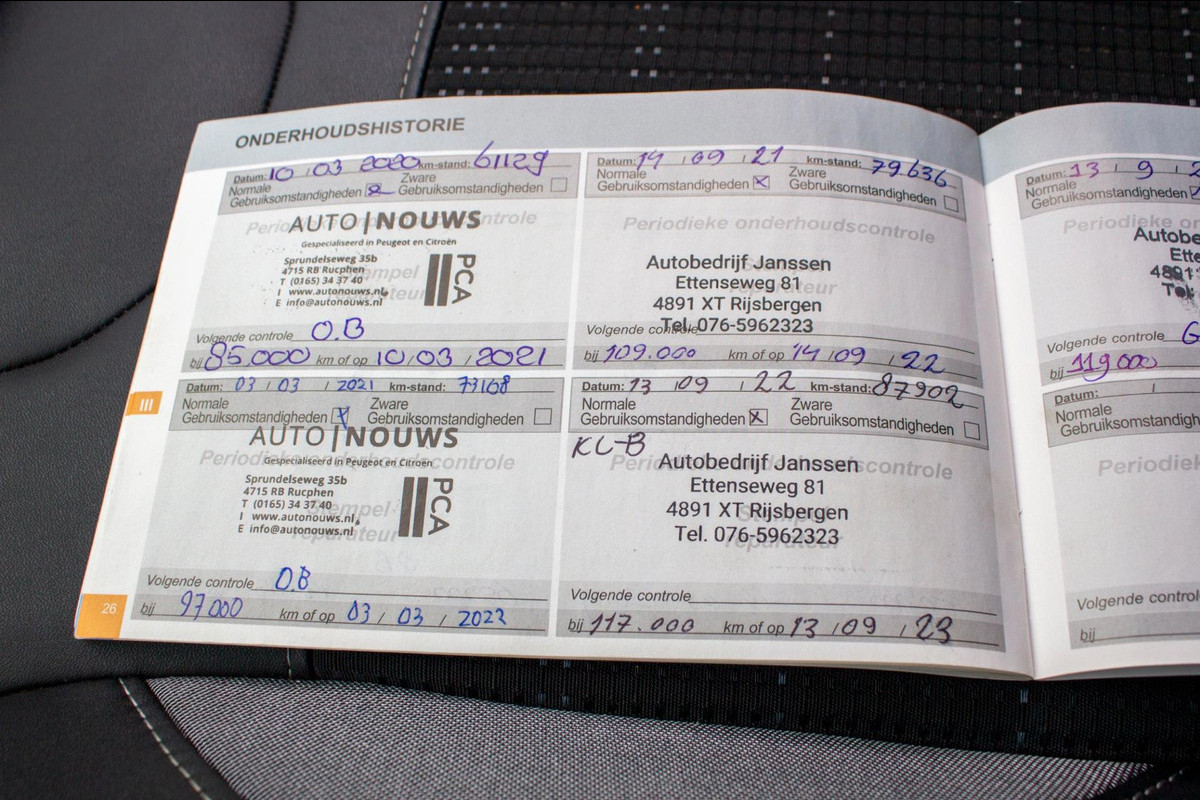 ONDERHOUDSHISTORIE
Datum: 10 / 03 2020 km-stand: 61129
Normale Gebruiksomstandigheden Zware Gebruiksomstandigheden
Periodieke onderhoudscontrole
AUTO|NOUWS
Gespecialiseerd in Peugeot en Citroën
Sprundelseweg 35b
4715 RB Rucphen
T (0165) 34 37 40
I www.autonouws.nl
E info@autonouws.nl
PCA
Stempel
reparateur
Volgende controle O.B
bij 85.000 km of op 10/03/2021
Datum: 03 / 03 / 2021 km-stand: 73168
Normale Gebruiksomstandigheden Zware Gebruiksomstandigheden
AUTO|NOUWS
Periodieke onderhoudscontrole
Gespecialiseerd in Peugeot en Citroën
Sprundelseweg 35b
4715 RB Rucphen
T (0165) 34 37 40
I www.autonouws.nl
E info@autonouws.nl
PCA
Stempel
reparateur
Volgende controle O.B
bij 97000 km of op 03 / 03 / 2022
III
26
Datum: 14 / 09 / 21 km-stand: 79.636
Normale Gebruiksomstandigheden Zware Gebruiksomstandigheden
Periodieke onderhoudscontrole
Autobedrijf Janssen
Ettenseweg 81
4891 XT Rijsbergen
Tel. 076-5962323
Stempel
reparateur
Volgende controle
bij 109.000 km of op 14 / 09 / 22
Datum: 13 / 09 / 22 km-stand: 87902
Normale Gebruiksomstandigheden Zware Gebruiksomstandigheden
KL-B
Periodieke onderhoudscontrole
Autobedrijf Janssen
Ettenseweg 81
4891 XT Rijsbergen
Tel. 076-5962323
Stempel
reparateur
Volgende controle
bij 117.000 km of op 13 / 09 / 23
Datum: 13 / 9 / 2
Normale
Gebruiksomstandigheden
Periodieke on
Autobe
Ette
4891
Tel.
Volgende controle
bij 119000
Datum: /
Normale
Gebruiksomstandigh
Periodiek
Volgende controle
bij